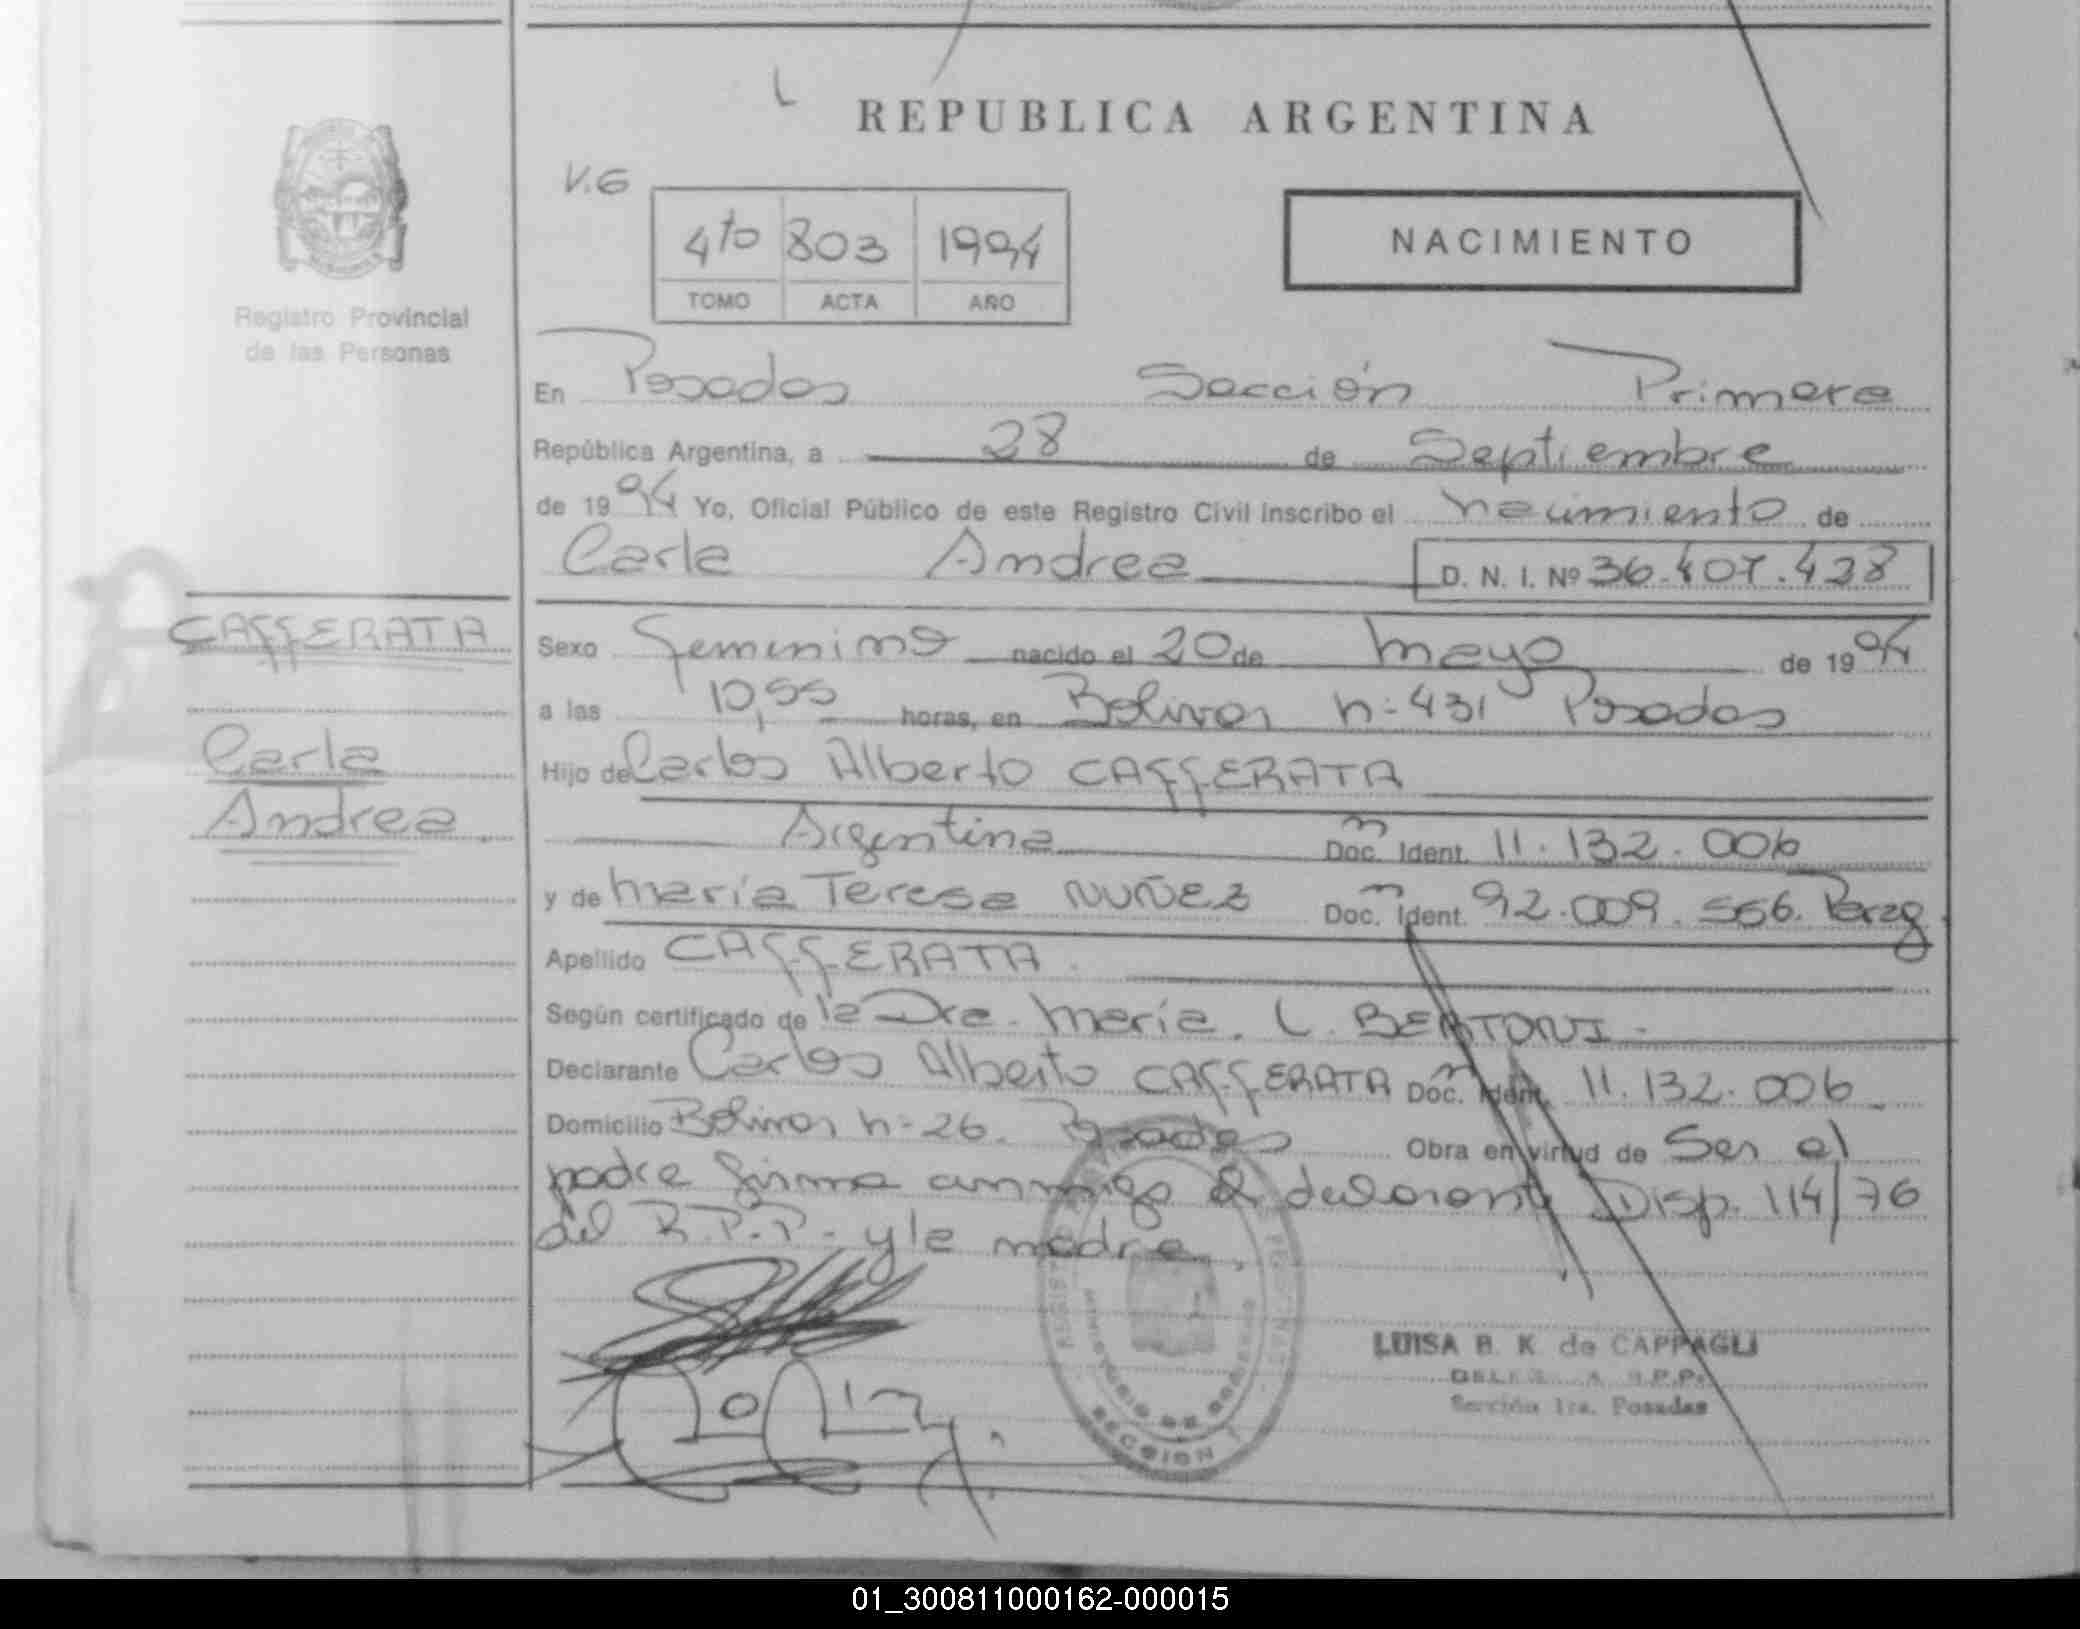 REPUBLICA ARGENTINA
V.G
4to 803 1994
TOMO ACTA AÑO
NACIMIENTO
Registro Provincial
de las Personas
En Posadas Sección Primera
República Argentina, a 28 de Septiembre
de 1994 Yo, Oficial Público de este Registro Civil inscribo el nacimiento de
Carla Andrea D. N. I. Nº 36.407.428
CAFFERATA
Carla
Andrea
Sexo Femenino nacido el 20 de mayo de 1994
a las 10,55 horas, en Bolivar n: 431 Posadas
Hijo de Carlos Alberto CAFFERATA
Argentina Doc. Ident. 11.132.006
y de María Teresa NUÑEZ Doc. Ident. 92.009.566. Parag.
Apellido CAFFERATA
Según certificado de la Dra. María. L. BERTONI
Declarante Carlos Alberto CAFFERATA Doc. Ident. 11.132.006
Domicilio Bolivar n: 26. Posadas Obra en virtud de Ser el
padre firma conmigo el declarante Disp. 114/76
del R.P.P. y la madre.
LUISA B. K de CAPPAGLI
Sección 1ra. Posadas
MINISTERIO DE GOBIERNO
SECCION 1
01_300811000162-000015